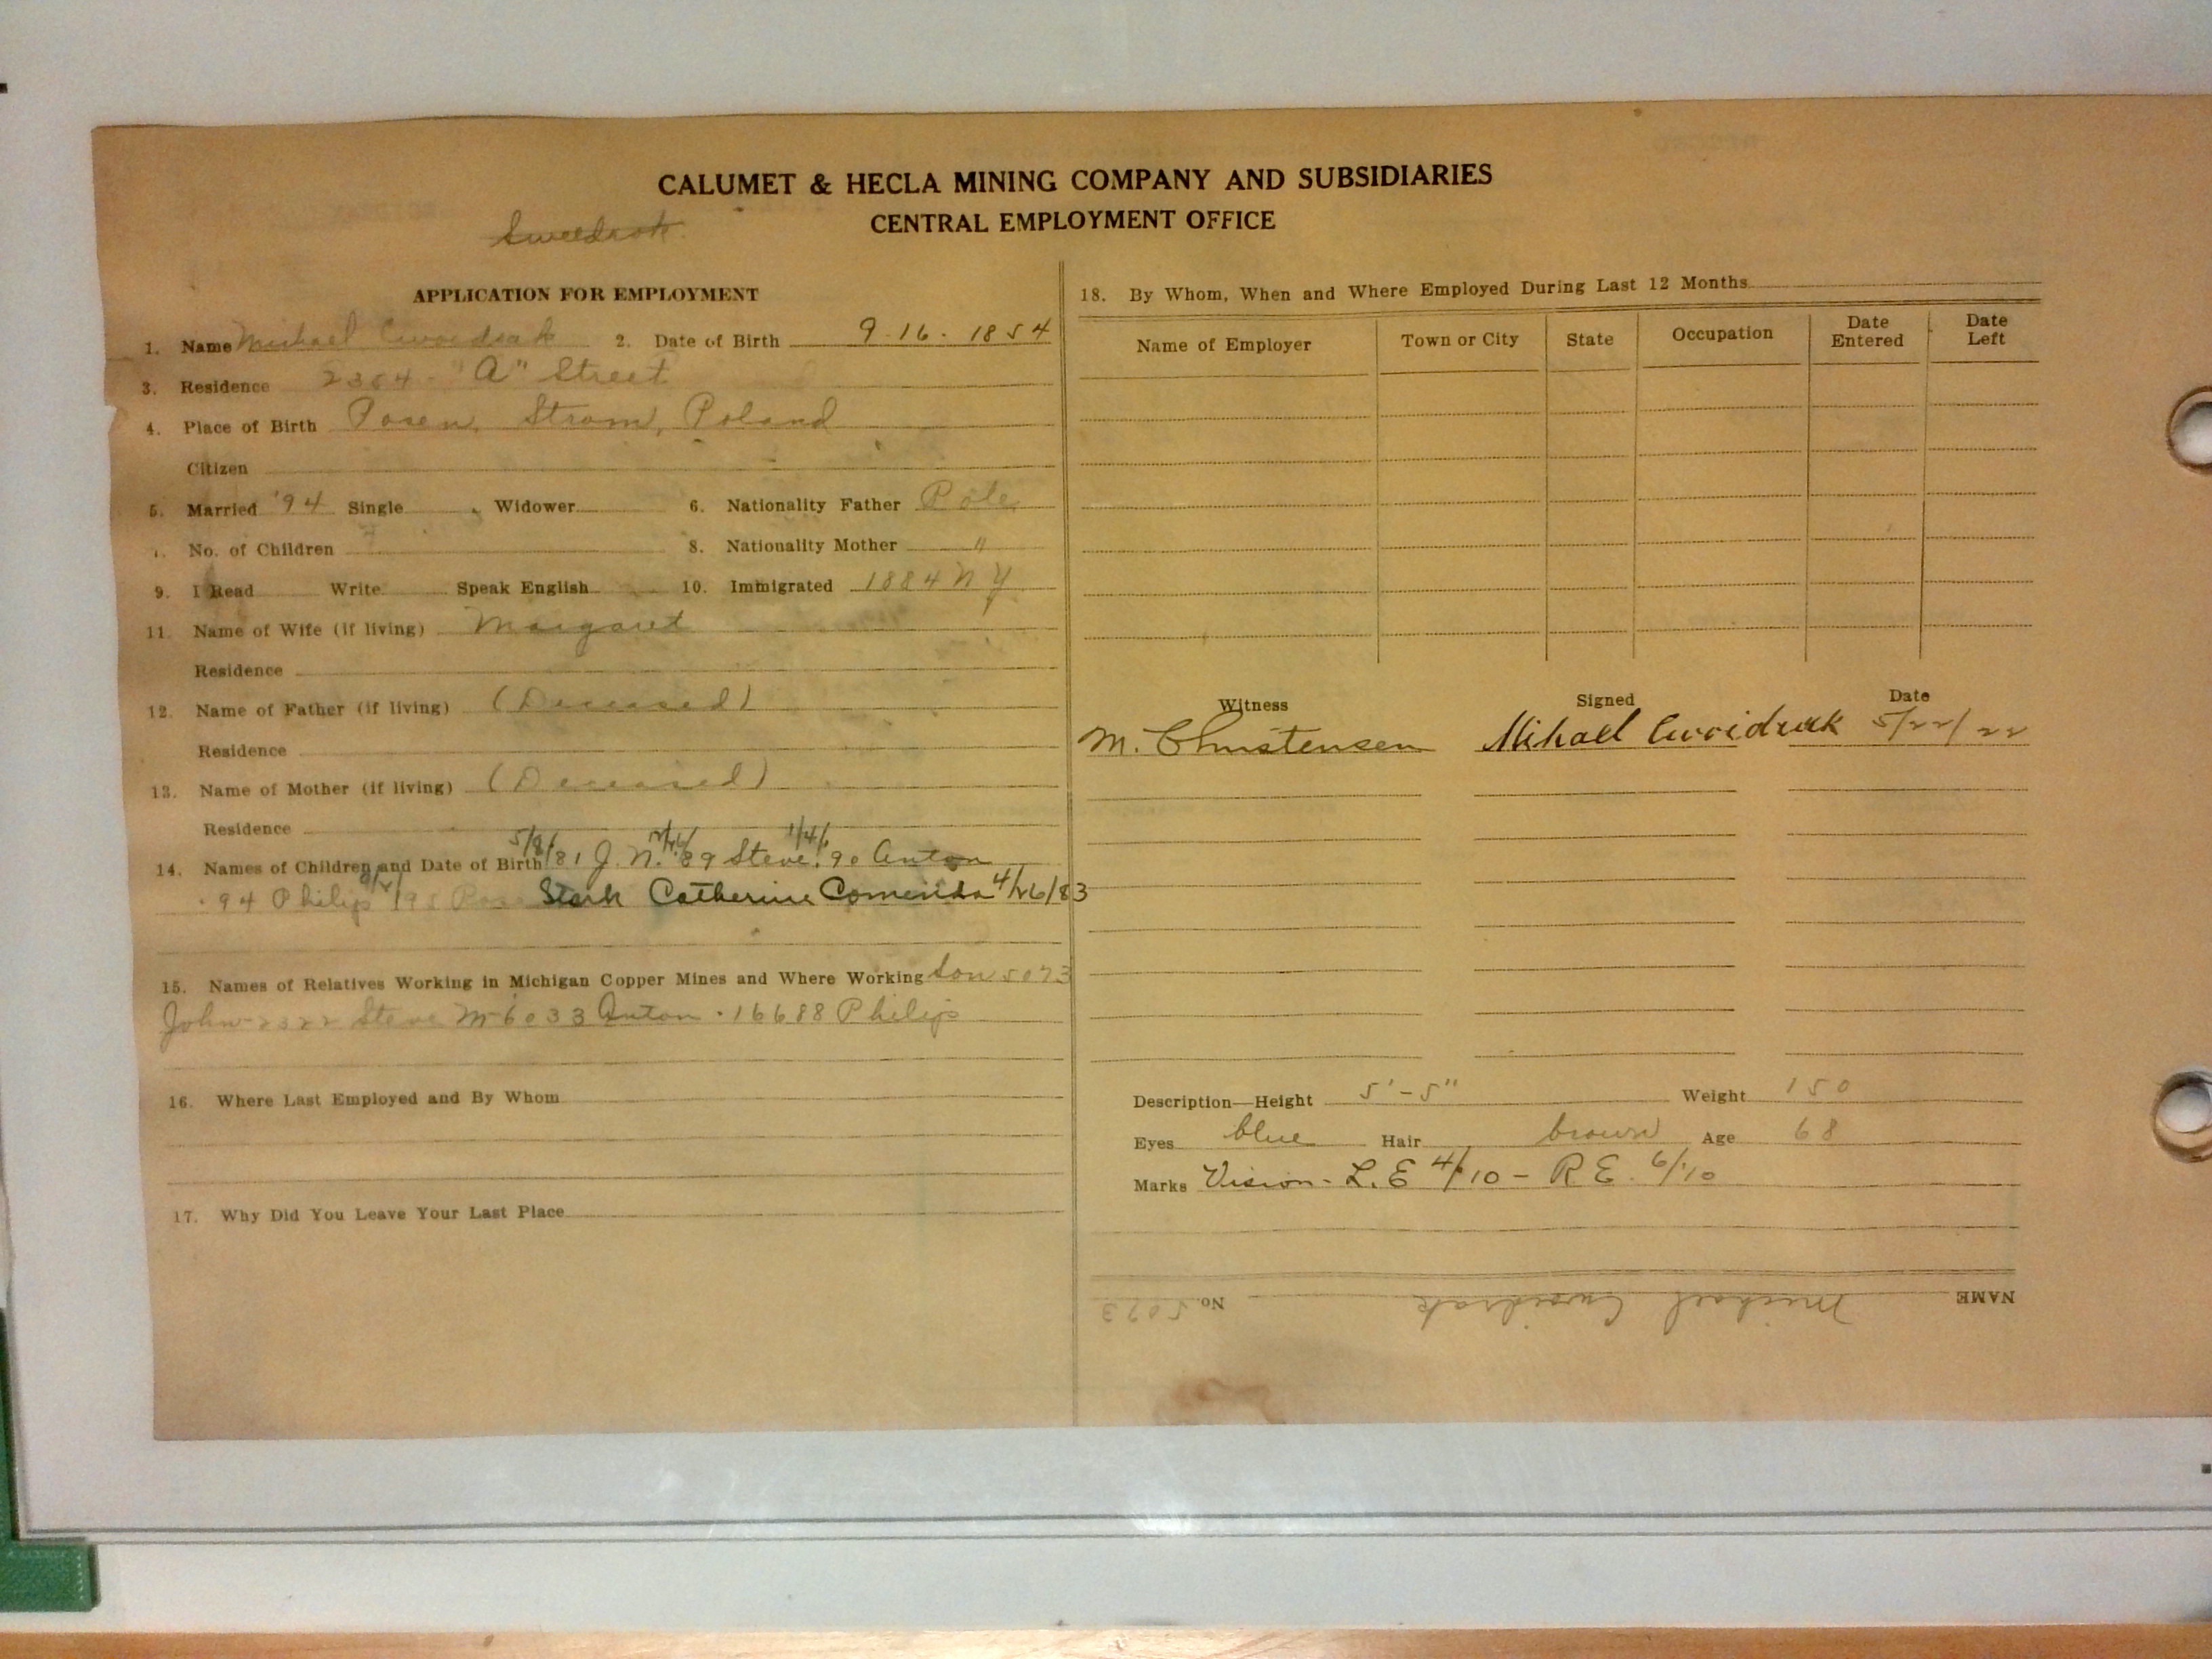 CALUMET & HECLA MINING COMPANY AND SUBSIDIARIES
CENTRAL EMPLOYMENT OFFICE
APPLICATION FOR EMPLOYMENT
1. Name Michael Cwoidrak 2. Date of Birth 9-16-1854
3. Residence 2354 - "A" Street
4. Place of Birth Posen, Strom, Poland
Citizen
5. Married '94 Single Widower 6. Nationality Father Pole
No. of Children 8. Nationality Mother "
9. I Read Write Speak English 10. Immigrated 1884 N Y
11. Name of Wife (if living) Margaret
Residence
12. Name of Father (if living) (Deceased)
Residence
13. Name of Mother (if living) (Deceased)
Residence
14. Names of Children and Date of Birth 5/8/81 J. N. '89 Steve '90 Anton
94 Philip Catherine Comenda 4/26/83
15. Names of Relatives Working in Michigan Copper Mines and Where Working Son 5073
John 2322 Steve M 6033 Anton - 16688 Philip
16. Where Last Employed and By Whom
17. Why Did You Leave Your Last Place
18. By Whom, When and Where Employed During Last 12 Months
Name of Employer Town or City State Occupation Date Entered Date Left
Witness Signed Date
M. Christensen Mihael Cwoidrak 5/22/22
Description—Height 5'-5" Weight 150
Eyes blue Hair brown Age 68
Marks Vision - L.E 4/10 - R E. 6/10
NAME Michael Cwoidrak No. 5073